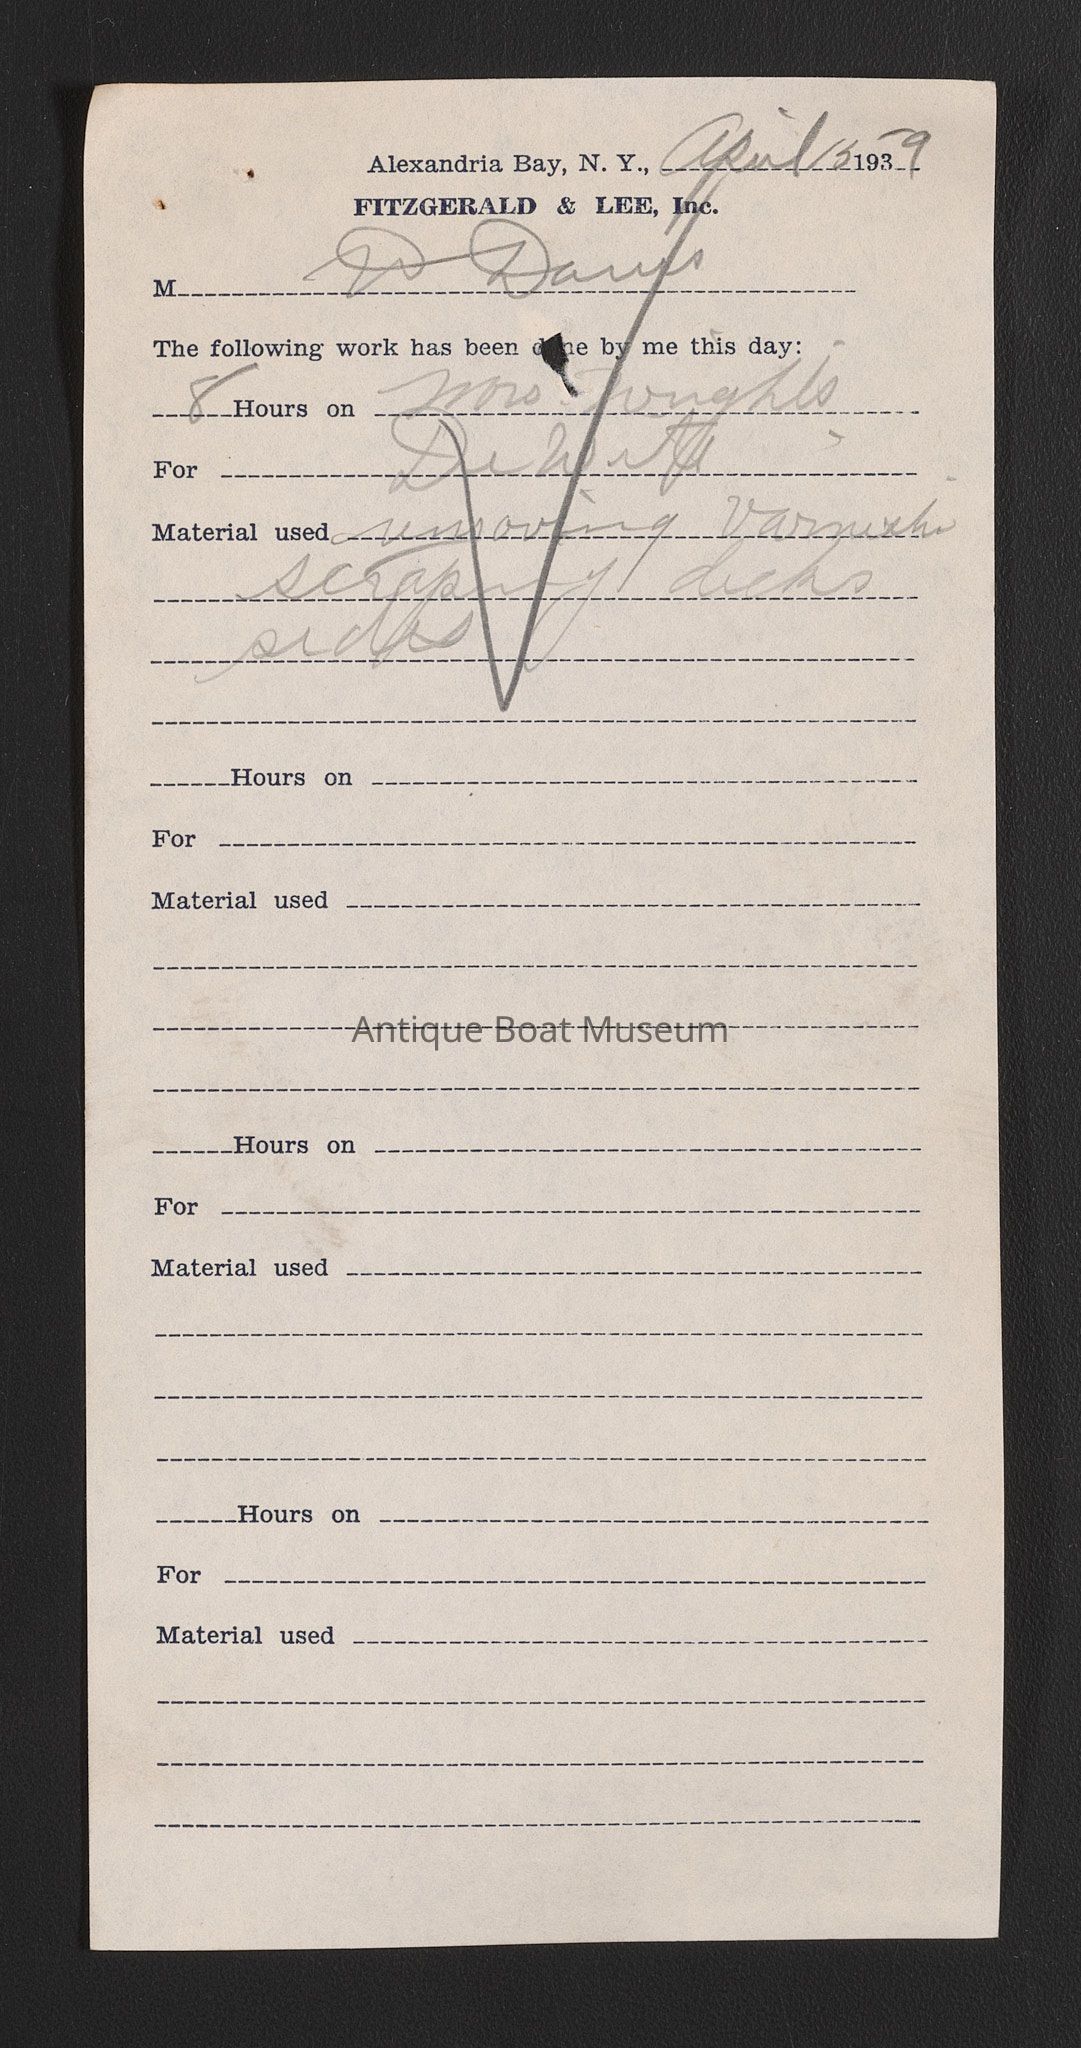 Alexandria Bay, N. Y., April 15 1939
FITZGERALD & LEE, Inc.
M D Davis
The following work has been done by me this day:
8 Hours on Mrs.
For DeWitt
Material used removing Varnish
scraping decks
sides
Hours on
For
Material used
Antique Boat Museum
Hours on
For
Material used
Hours on
For
Material used